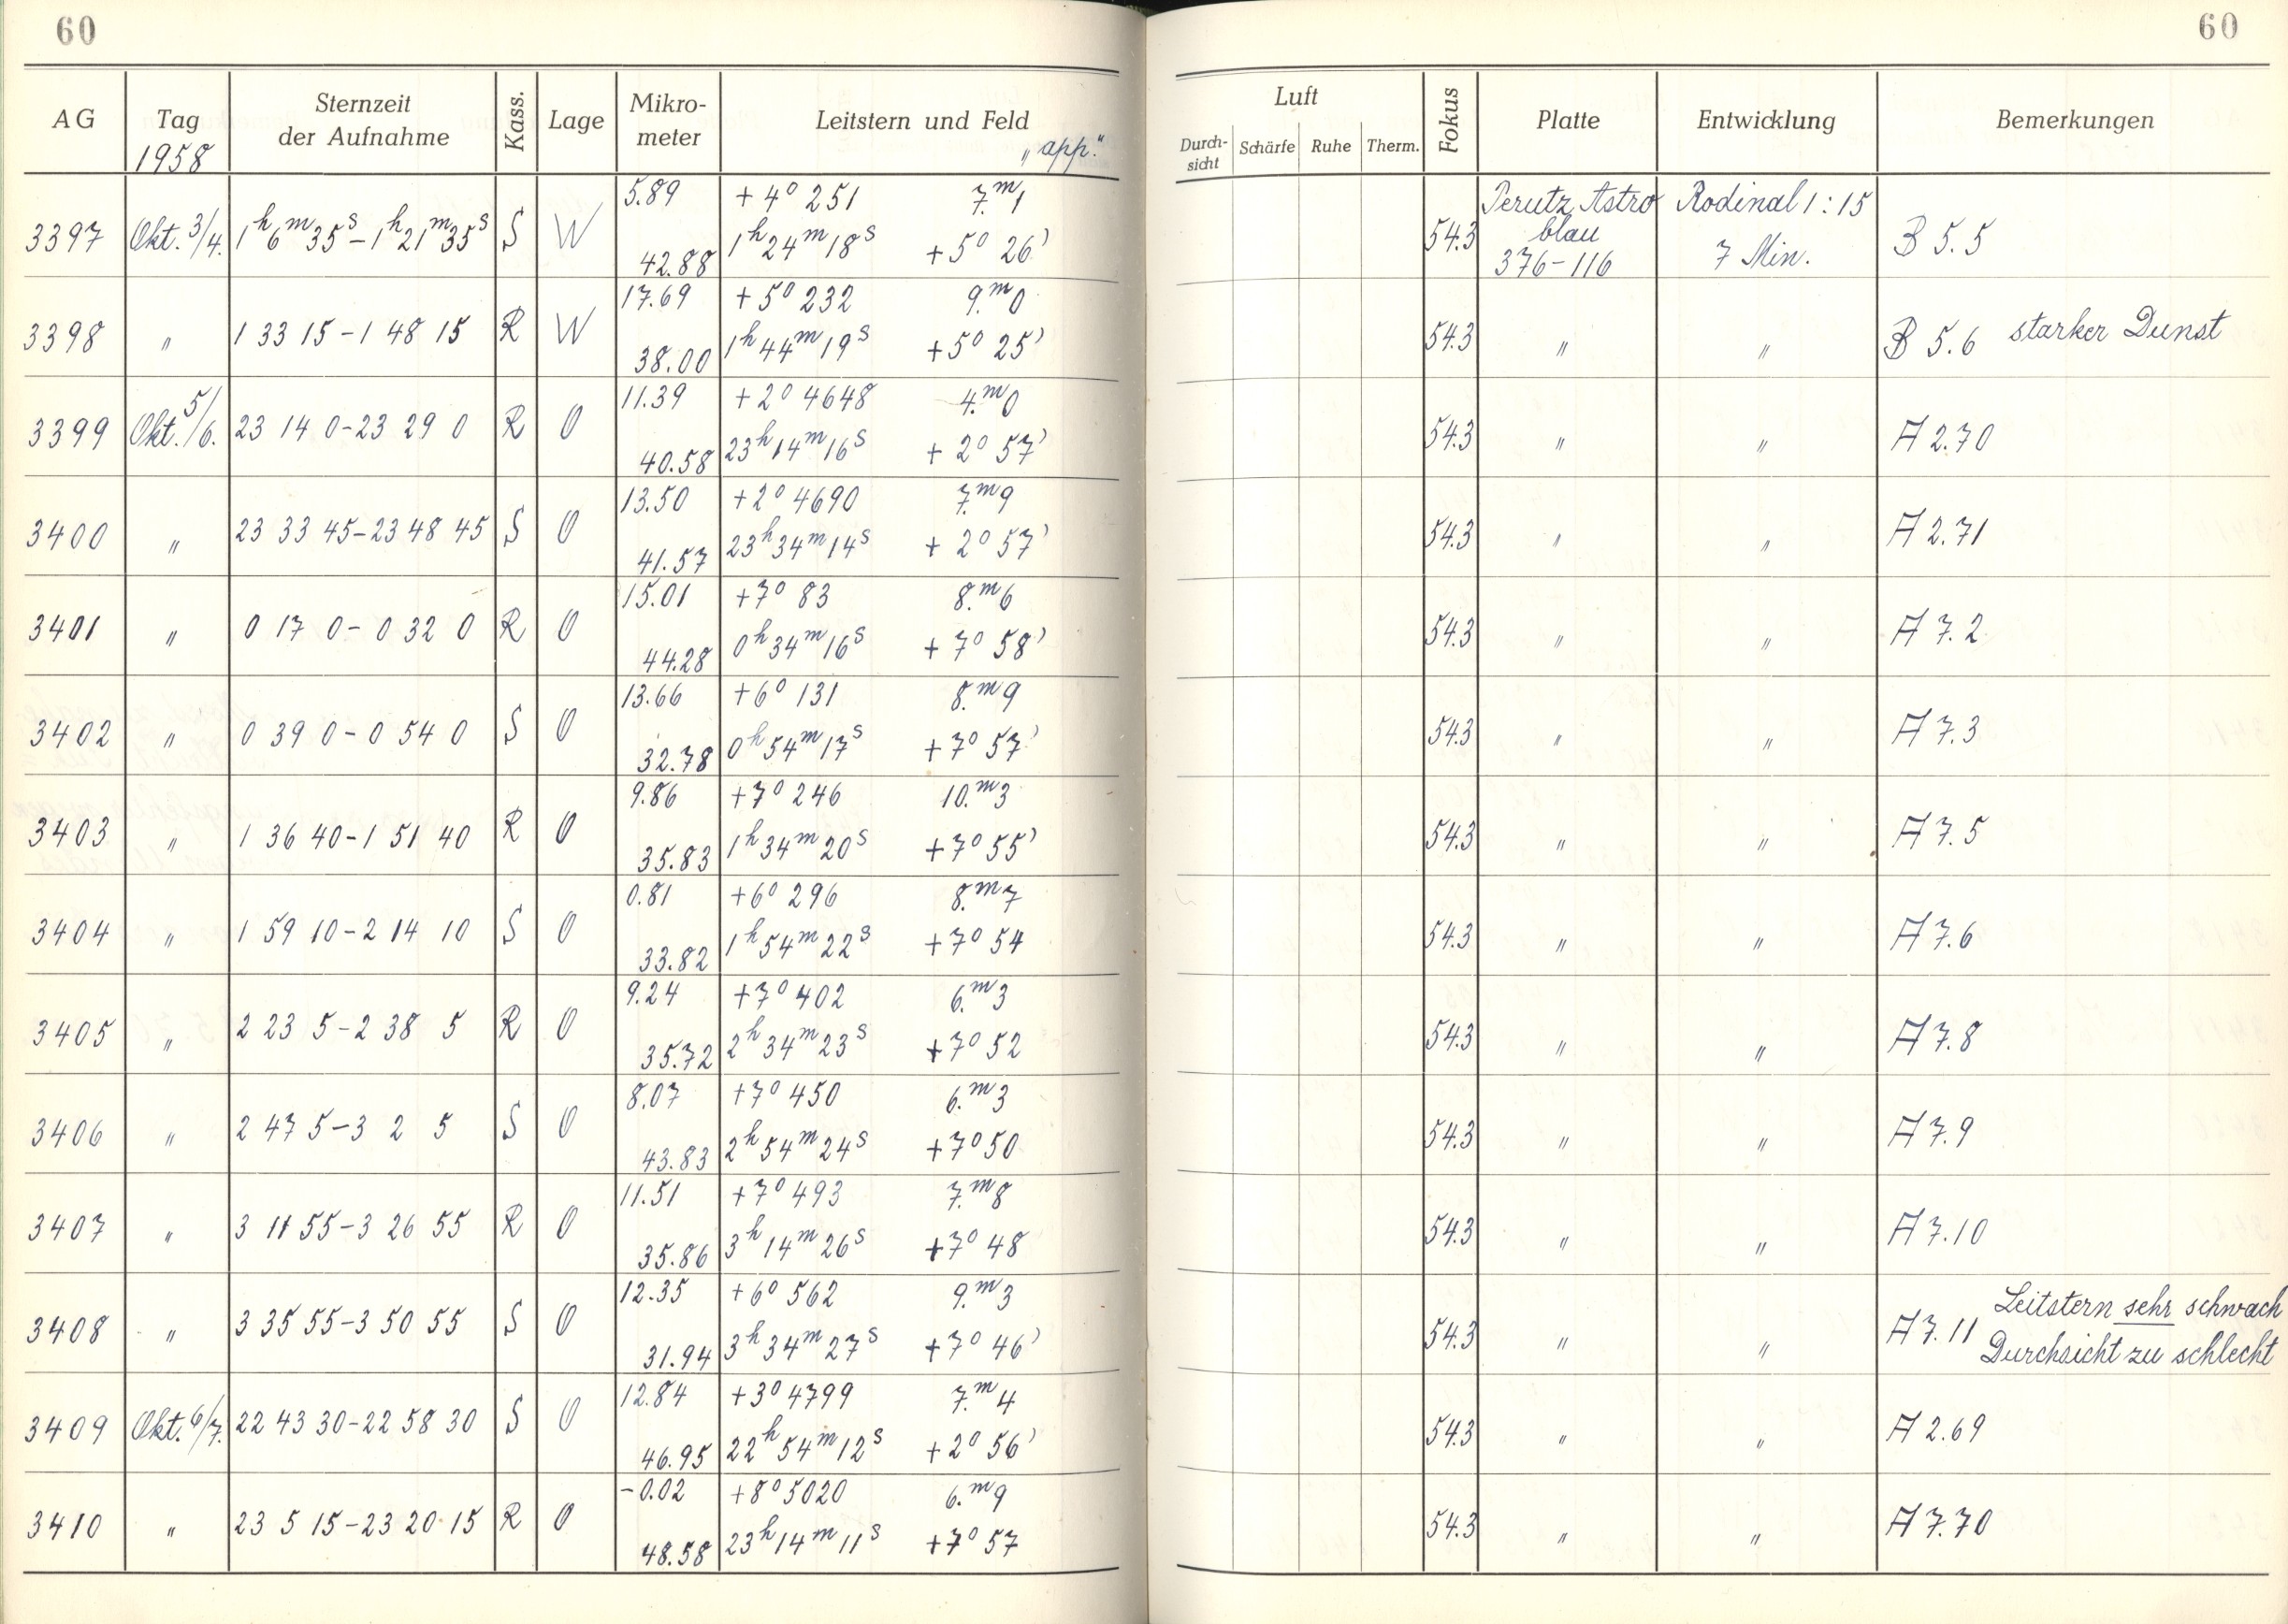 60
60
AG
Tag
1958
Sternzeit
der Aufnahme
Kass.
Lage
Mikro-
meter
Leitstern und Feld
„app."
Luft
Durch-
sicht
Schärfe
Ruhe
Therm.
Fokus
Platte
Entwicklung
Bemerkungen
5.89 +4° 251 7.ᵐ1 Perutz Astro Rodinal 1:15
3397 Okt. 3/4. 1ʰ6ᵐ35ˢ–1ʰ21ᵐ35ˢ S W 54.3 blau B 5.5
42.88 1ʰ24ᵐ18ˢ +5° 26' 376–116 7 Min.
17.69 +5° 232 9.ᵐ0
3398 " 1 33 15–1 48 15 R W 54.3 " " B 5.6 starker Dunst
38.00 1ʰ44ᵐ19ˢ +5° 25'
11.39 +2° 4648 4.ᵐ0
3399 Okt. 5/6. 23 14 0–23 29 0 R O 54.3 " " A 2.70
40.58 23ʰ14ᵐ16ˢ +2° 57'
13.50 +2° 4690 7.ᵐ9
3400 " 23 33 45–23 48 45 S O 54.3 " " A 2.71
41.57 23ʰ34ᵐ14ˢ +2° 57'
15.01 +7° 83 8.ᵐ6
3401 " 0 17 0–0 32 0 R O 54.3 " " A 7.2
44.28 0ʰ34ᵐ16ˢ +7° 58'
13.66 +6° 131 8.ᵐ9
3402 " 0 39 0–0 54 0 S O 54.3 " " A 7.3
32.78 0ʰ54ᵐ17ˢ +7° 57'
9.86 +7° 246 10.ᵐ3
3403 " 1 36 40–1 51 40 R O 54.3 " " A 7.5
35.83 1ʰ34ᵐ20ˢ +7° 55'
0.81 +6° 296 8.ᵐ7
3404 " 1 59 10–2 14 10 S O 54.3 " " A 7.6
33.82 1ʰ54ᵐ22ˢ +7° 54
9.24 +7° 402 6.ᵐ3
3405 " 2 23 5–2 38 5 R O 54.3 " " A 7.8
35.72 2ʰ34ᵐ23ˢ +7° 52
8.07 +7° 450 6.ᵐ3
3406 " 2 47 5–3 2 5 S O 54.3 " " A 7.9
43.83 2ʰ54ᵐ24ˢ +7° 50
11.51 +7° 493 7.ᵐ8
3407 " 3 11 55–3 26 55 R O 54.3 " " A 7.10
35.86 3ʰ14ᵐ26ˢ +7° 48
12.35 +6° 562 9.ᵐ3 Leitstern sehr schwach
3408 " 3 35 55–3 50 55 S O 54.3 " " A 7.11
31.94 3ʰ34ᵐ27ˢ +7° 46' Durchsicht zu schlecht
12.84 +3° 4799 7.ᵐ4
3409 Okt. 6/7. 22 43 30–22 58 30 S O 54.3 " " A 2.69
46.95 22ʰ54ᵐ12ˢ +2° 56'
-0.02 +8° 5020 6.ᵐ9
3410 " 23 5 15–23 20 15 R O 54.3 " " A 7.70
48.58 23ʰ14ᵐ11ˢ +7° 57